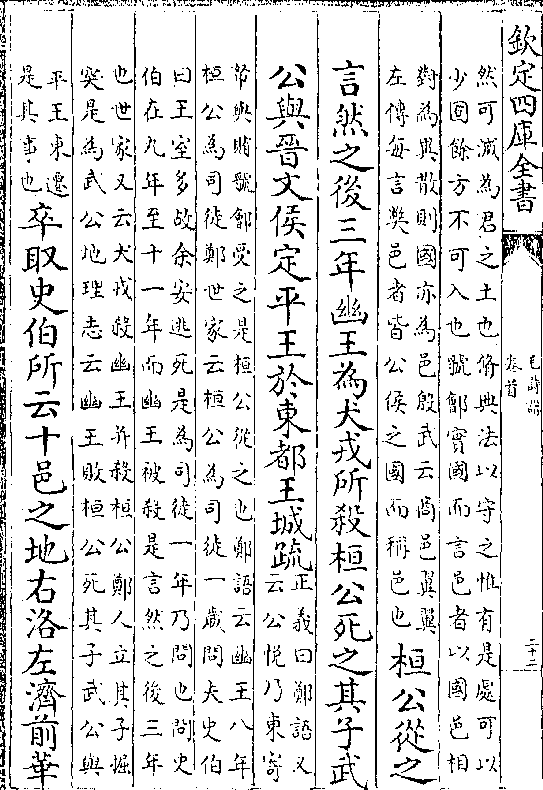 欽定四庫全書
毛詩譜
卷首
二十二
然可滅為君之土也脩典法以守之惟有是處可以
少固餘方不可入也虢鄶實國而言邑者以國邑相
對為異散則國亦為邑殷武云商邑翼翼
左傳每言獘邑者皆公侯之國而稱邑也
桓公從之
言然之後三年幽王為犬戎所殺桓公死之其子武
公與晉文侯定平王於東都王城疏
正義曰鄭語又
云公悦乃東寄
帑與賄虢鄶受之是桓公從之也鄭語云幽王八年
桓公為司徒鄭世家云桓公為司徒一歲問太史伯
曰王室多故余安逃死是為司徒一年乃問也問史
伯在九年至十一年而幽王被殺是言然之後三年
也世家又云犬戎殺幽王并殺桓公鄭人立其子掘
突是為武公地理志云幽王敗桓公死其子武公與
平王東遷
是其事也
卒取史伯所云十邑之地右洛左濟前華